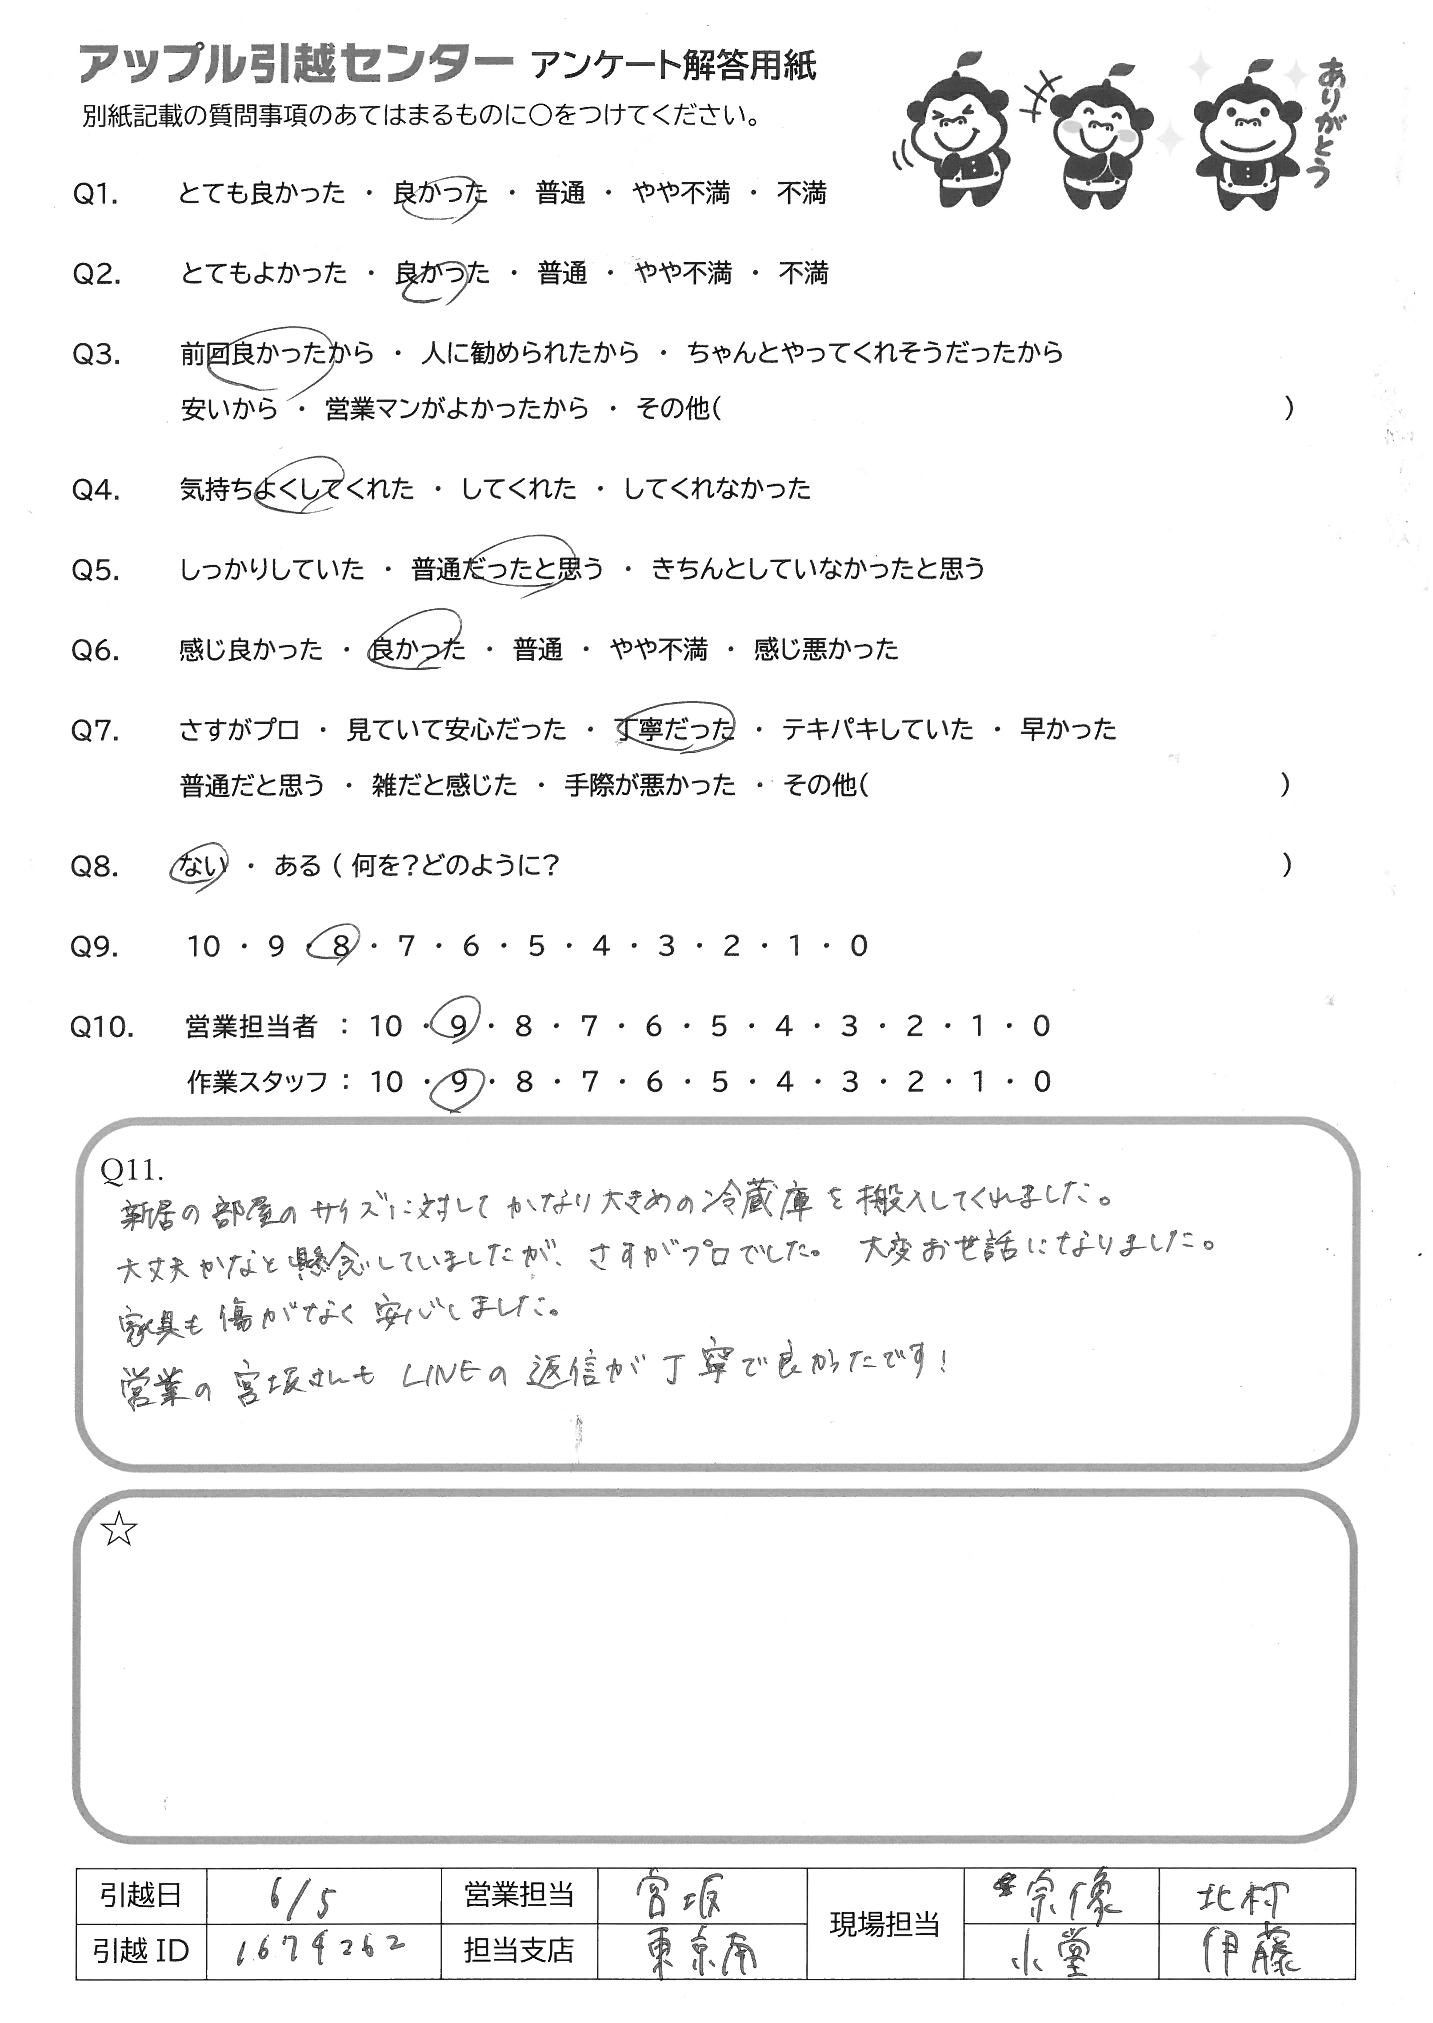 アップル引越センター アンケート解答用紙
別紙記載の質問事項のあてはまるものに○をつけてください。
ありがとう
Q1. とても良かった ・ 良かった ・ 普通 ・ やや不満 ・ 不満
Q2. とてもよかった ・ 良かった ・ 普通 ・ やや不満 ・ 不満
Q3. 前回良かったから ・ 人に勧められたから ・ ちゃんとやってくれそうだったから
安いから ・ 営業マンがよかったから ・ その他( )
Q4. 気持ちよくしてくれた ・ してくれた ・ してくれなかった
Q5. しっかりしていた ・ 普通だったと思う ・ きちんとしていなかったと思う
Q6. 感じ良かった ・ 良かった ・ 普通 ・ やや不満 ・ 感じ悪かった
Q7. さすがプロ ・ 見ていて安心だった ・ 丁寧だった ・ テキパキしていた ・ 早かった
普通だと思う ・ 雑だと感じた ・ 手際が悪かった ・ その他( )
Q8. ない ・ ある ( 何を?どのように? )
Q9. 10 ・ 9 ・ 8 ・ 7 ・ 6 ・ 5 ・ 4 ・ 3 ・ 2 ・ 1 ・ 0
Q10. 営業担当者 : 10 ・ 9 ・ 8 ・ 7 ・ 6 ・ 5 ・ 4 ・ 3 ・ 2 ・ 1 ・ 0
作業スタッフ : 10 ・ 9 ・ 8 ・ 7 ・ 6 ・ 5 ・ 4 ・ 3 ・ 2 ・ 1 ・ 0
Q11.
新居の部屋のサイズに対してかなり大きめの冷蔵庫を搬入してくれました。
大丈夫かなと懸念していましたが、さすがプロでした。 大変お世話になりました。
家具も傷がなく安心しました。
営業の宮坂さんもLINEの返信が丁寧で良かったです!
☆
引越日 6/5 営業担当 宮坂 現場担当 宗像 北村
引越ID 1679262 担当支店 東京南 小堂 伊藤